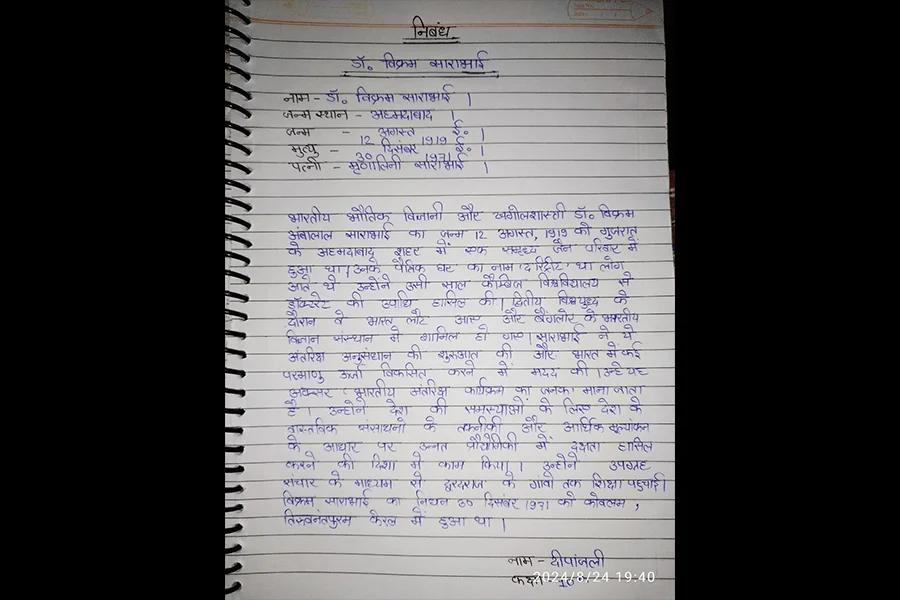 निबंध
डॉ. विक्रम साराभाई
नाम - डॉ. विक्रम साराभाई ।
जन्म स्थान - अहमदाबाद ।
जन्म - 12 अगस्त 1919 ई. ।
मुत्यु - 30 दिसंबर 1971 ई. ।
पत्नी - मृणालिनी साराभाई ।
भारतीय भौतिक विज्ञानी और खगोलशास्त्री डॉ. विक्रम
अंबालाल साराभाई का जन्म 12 अगस्त, 1919 को गुजरात
के अहमदाबाद शहर में एक समृध्द जैन परिवार में
हुआ था। उनके पैतिक घर का नाम 'द रिट्रीट' था लोग
आते थे उन्होंने उसी साल कैम्ब्रिज विश्वविद्यालय से
डॉक्टरेट की उपाधि हासिल की। द्वितीय विश्वयुध्द के
दौरान वे भारत लौट आए और बैंगलोर के भारतीय
विज्ञान संस्थान में शामिल हो गए। साराभाई ने ये
अंतरिक्ष अनुसंधान की शुरुआत की और भारत में कई
परमाणु ऊर्जा विकसित करने में मदद की। उन्हें यह
अक्सर भारतीय अंतरिक्ष कार्यक्रम का जनक माना जाता
है। उन्होंने देश की समस्याओं के लिए देश के
वास्तविक संसाधनों के तकनीकी और आर्थिक मूल्यांकन
के आधार पर उन्नत प्रौद्योगिकी में दक्षता हासिल
करने की दिशा में काम किया। उन्होंने उपग्रह
संचार के माध्यम से दूरदराज के गांवों तक शिक्षा पहुंचाई।
विक्रम साराभाई का निधन 30 दिसंबर 1971 को कोवलम,
तिरुवनंतपुरम केरल में हुआ था।
नाम - दीपांजली
कक्षा - 10
2024/8/24 19:40